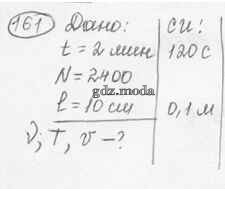 161 Дано: СИ:
t = 2 мин 120 с
N = 2400
gdz.moda
l = 10 см 0,1 м
ν; T, v - ?